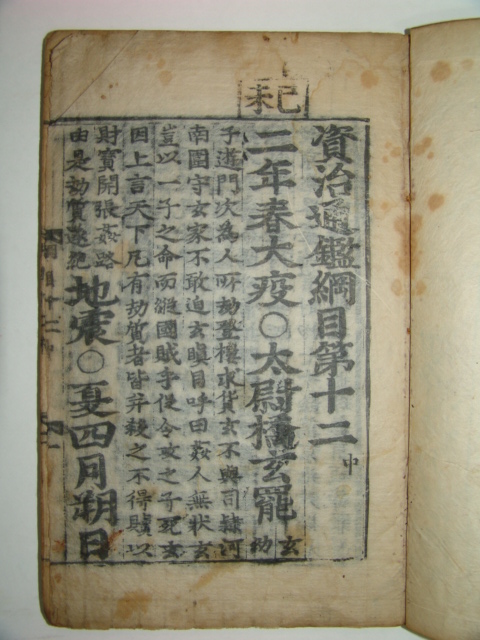 己未
資治通鑑綱目第十二中
二年春大疫○太尉橋玄罷玄幼
子遊門次為人所劫登樓求貨玄不與司隷河
南圍守玄家不敢迫玄瞋目呼曰姦人無狀玄
豈以一子之命而縱國賊乎促令攻之子死玄
因上言天下凡有劫質者皆并殺之不得贖以
財寶開張姦路
由是劫質遂絶
地震○夏四月朔日